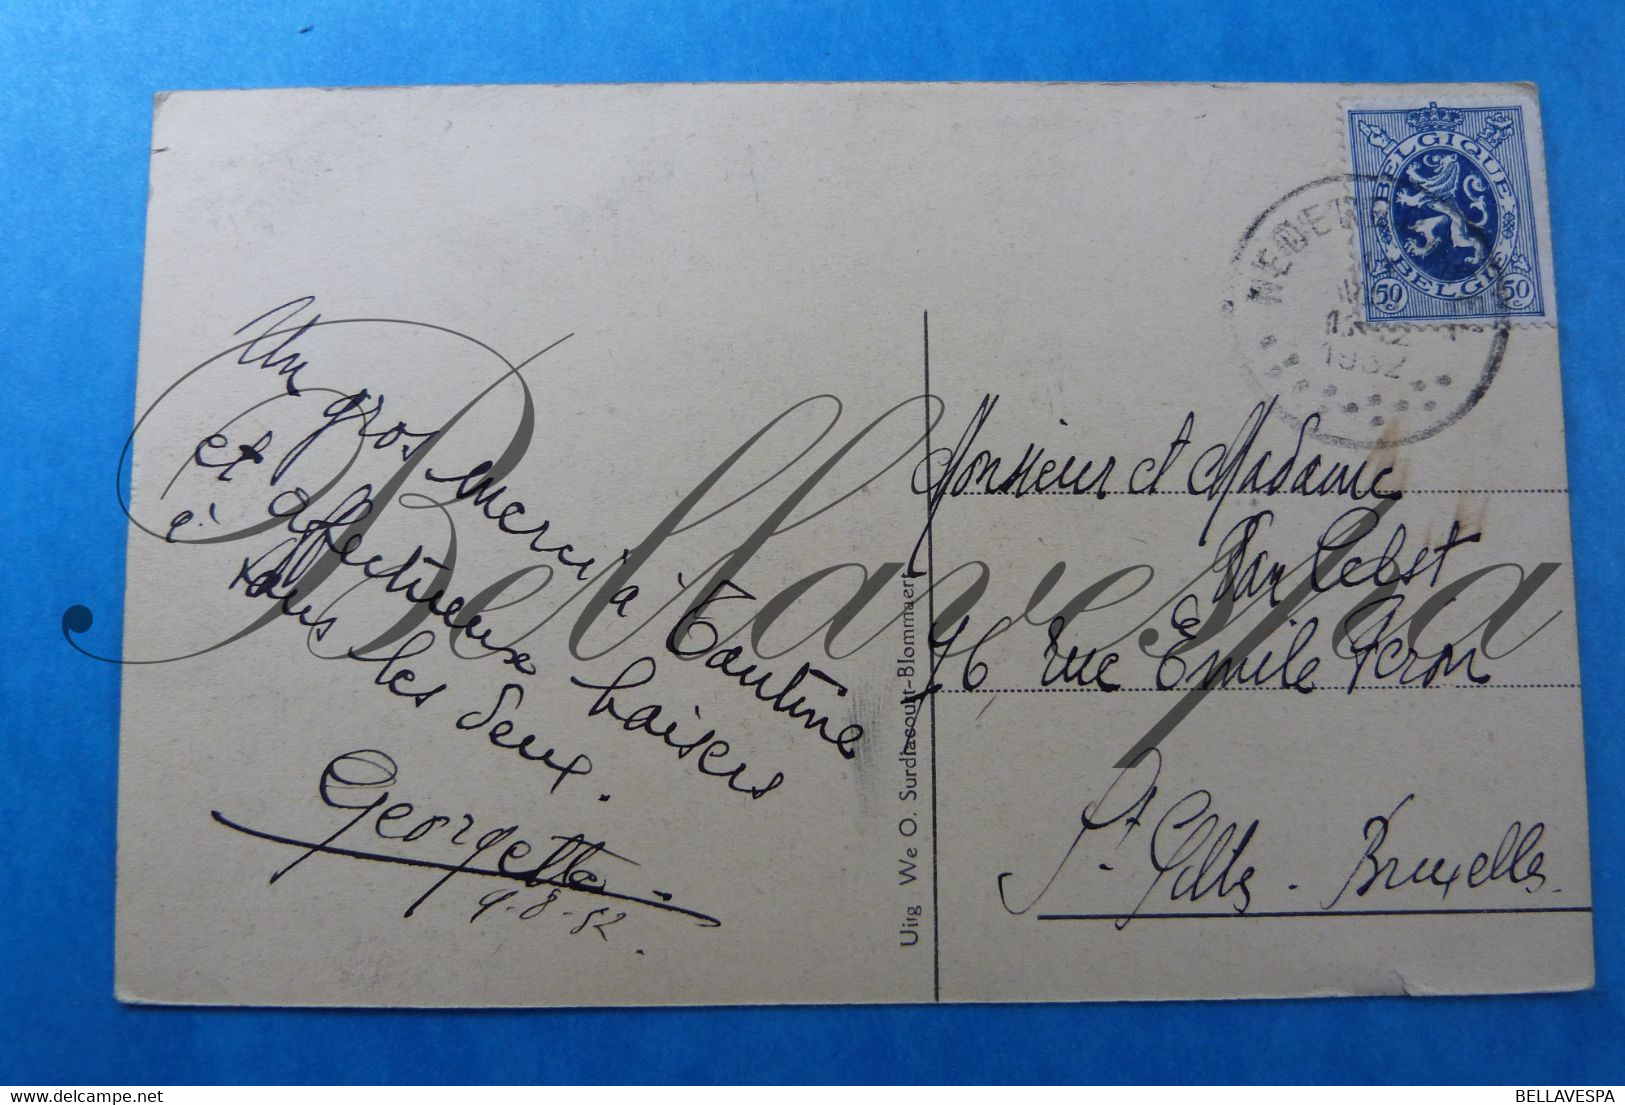 Un gros merci à Tantine
et affectueux baisers
à tous les deux.
Georgette.
9-8-32.
Uitg We O. Surdiacourt-Blommaert
BELGIQUE
BELGIE
50 50
1932
Monsieur et Madame
Van Aelst
96 rue Emile Feron
St Gilles - Bruxelles.
Bellavespa
BELLAVESPA